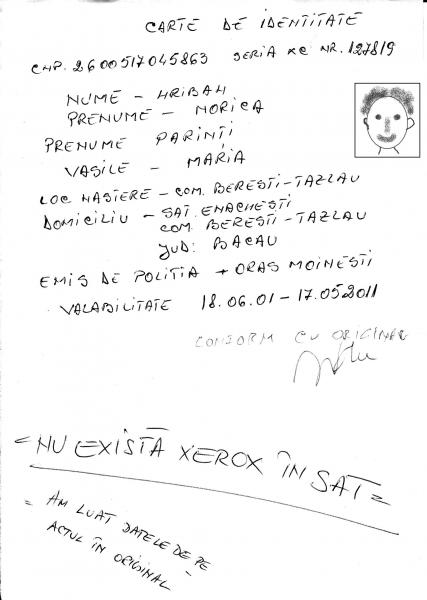 CARTE DE IDENTITATE
CNP. 2600517045863 SERIA XC NR. 127819
NUME – HRIBAH
PRENUME – NORICA
PRENUME PARINȚI
VASILE – MARIA
LOC NASTERE – COM. BERESTI-TAZLAU
DOMICILIU – SAT. ENACHESTI
COM. BERESTI-TAZLAU
JUD: BACAU
EMIS DE POLITIA + ORAS MOINESTI
VALABILITATE 18.06.01 – 17.052011
CONFORM CU ORIGINAL
= NU EXISTĂ XEROX ÎN SAT =
= AM LUAT DATELE DE PE
ACTUL ÎN ORIGINAL